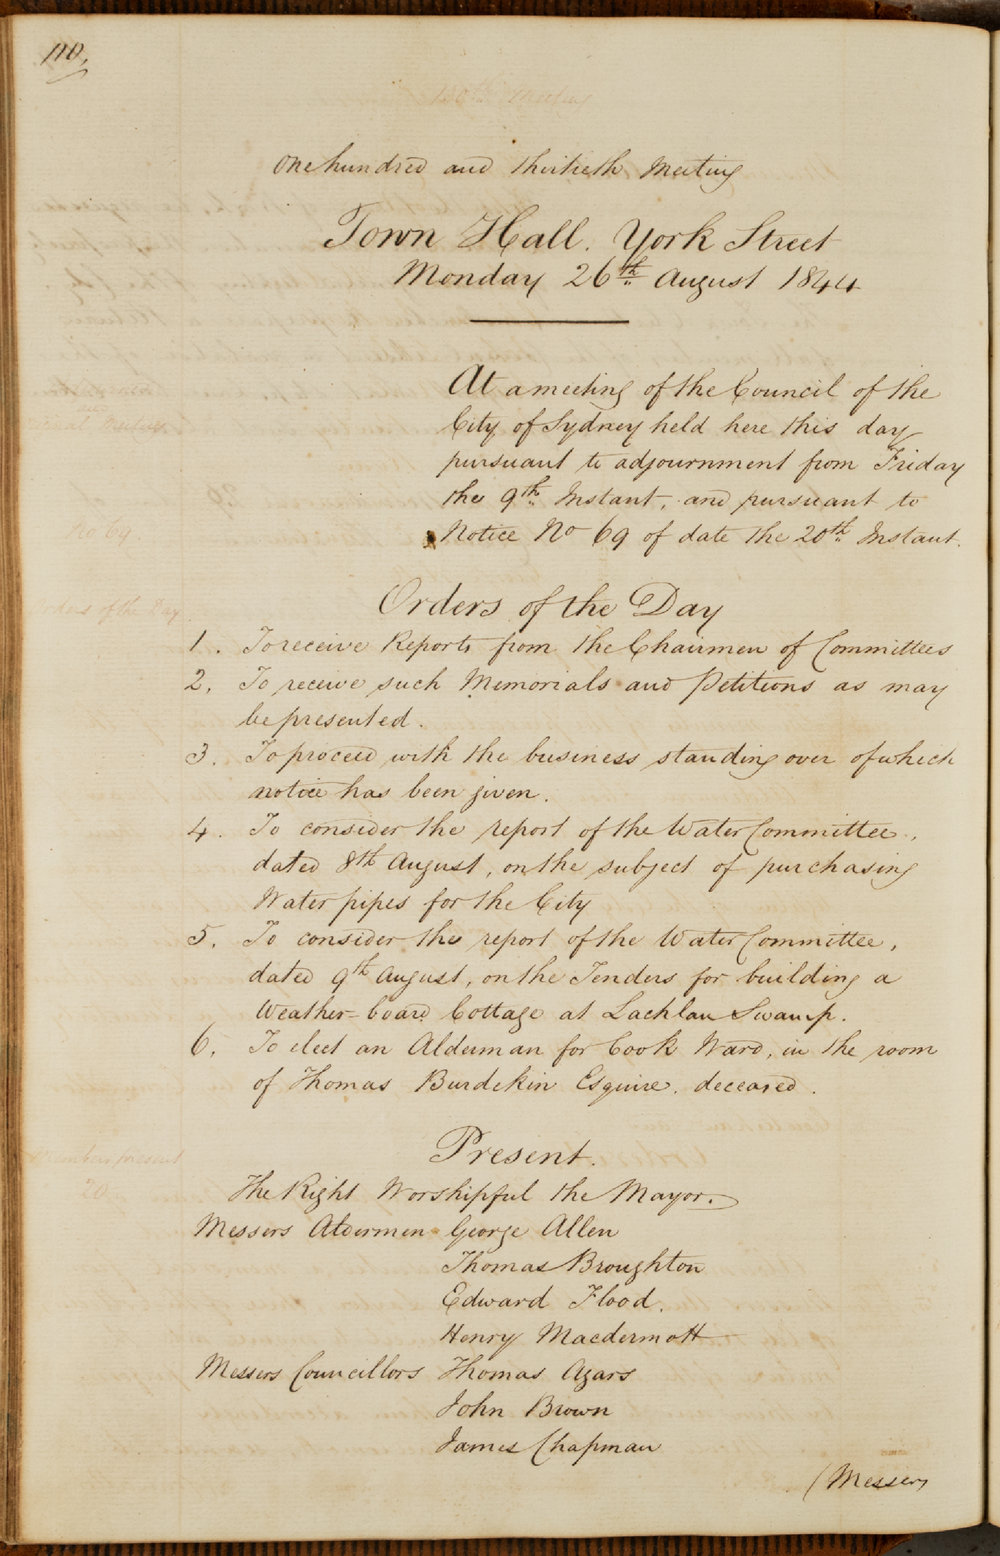 110.
130th Meeting
One hundred and thirtieth Meeting
Town Hall. York Street
Monday 26th August 1844
At a meeting of the Council of the
City of Sydney held here this day
pursuant to adjournment from Friday
the 9th Instant, and pursuant to
Notice No 69 of date the 20th Instant.
No 69.
Orders of the Day
Orders of the Day
1. To receive Reports from the Chairmen of Committees
2. To receive such Memorials and Petitions as may
be presented.
3. To proceed with the business standing over of which
notice has been given.
4. To consider the report of the Water Committee,
dated 8th August, on the subject of purchasing
Water pipes for the City
5. To consider the report of the Water Committee,
dated 9th August, on the Tenders for building a
Weather-board Cottage at Lachlan Swamp.
6. To elect an Alderman for Cook Ward, in the room
of Thomas Burdekin Esquire. deceased.
Present.
Members present
20
The Right Worshipful the Mayor.
Messers Aldermen George Allen
Thomas Broughton
Edward Flood.
Henry Macdermott
Messers Councillors Thomas Agars
John Brown
James Chapman
(Messers